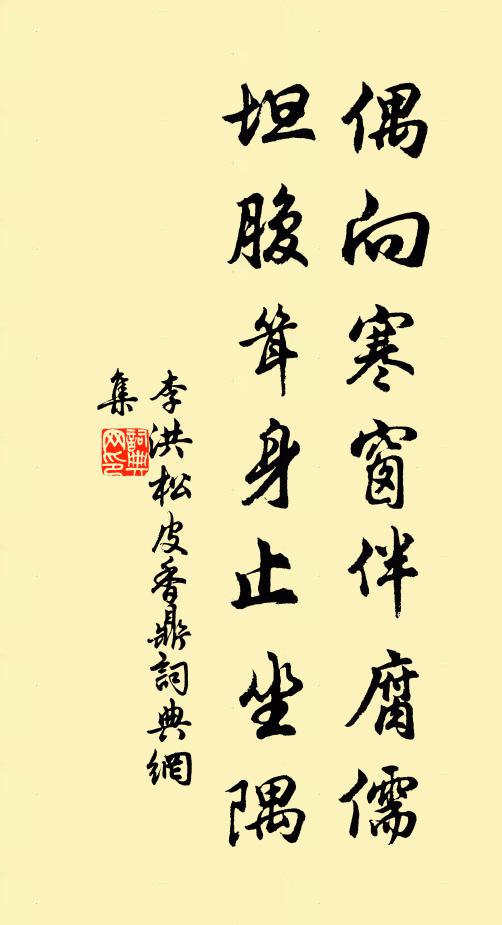 偶向寒窗伴腐儒
坦腹耸身止坐隅
李洪松皮香鼎詞典網
集
詞典
网印